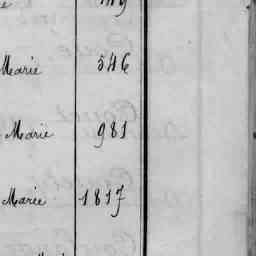 Marie 546
Marie 981
Marie 1817